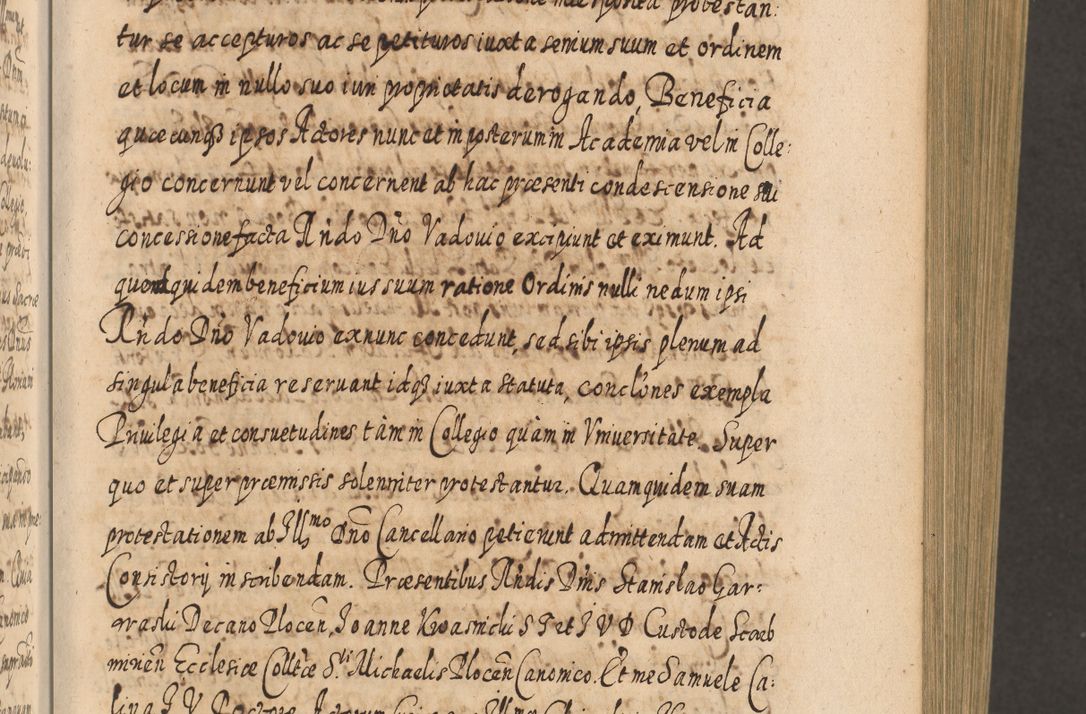 protestan:
tur se accepturos ac se petituros iuxta senium suum et ordinem
et locum in nullo suo iuri proprietatis derogando, Beneficia
quæcunqȝ ipsos Actores nunc et in posterum in Academia vel in Colle:
gio concernunt vel concernent ab hac præsenti condescensione sui
concessione facta Rńdo Dńo Vadouio excipiunt et eximunt. Ad
quod quidem beneficium ius suum ratione Ordinis nulli nedum ipsi
Rńdo Dńo Vadouio exnunc concedunt, sed sibi ipsis plenum ad
singula beneficia reseruant idqȝ iuxta statuta, conclones exempla
Priuilegia et consuetudines tàm in Collegio quàm in Vniuersitate. Super
quo et super præmissis solenniter protestantur. Quamquidem suam
protestationem ab Jll̃mo Dño Cancellario petierunt admittendam et Actis
Consistorÿ inscribendam. Præsentibus Rńdis Dńis Stanislao Gar:
waski Decano Plocen̄, Joanne Kwasnicki S T et J V D Custode Scarb
minen̄ Ecclesiæ Colltæ S.ti Michaelis Plocen̄ Canonico. Et me Samuele Ca: